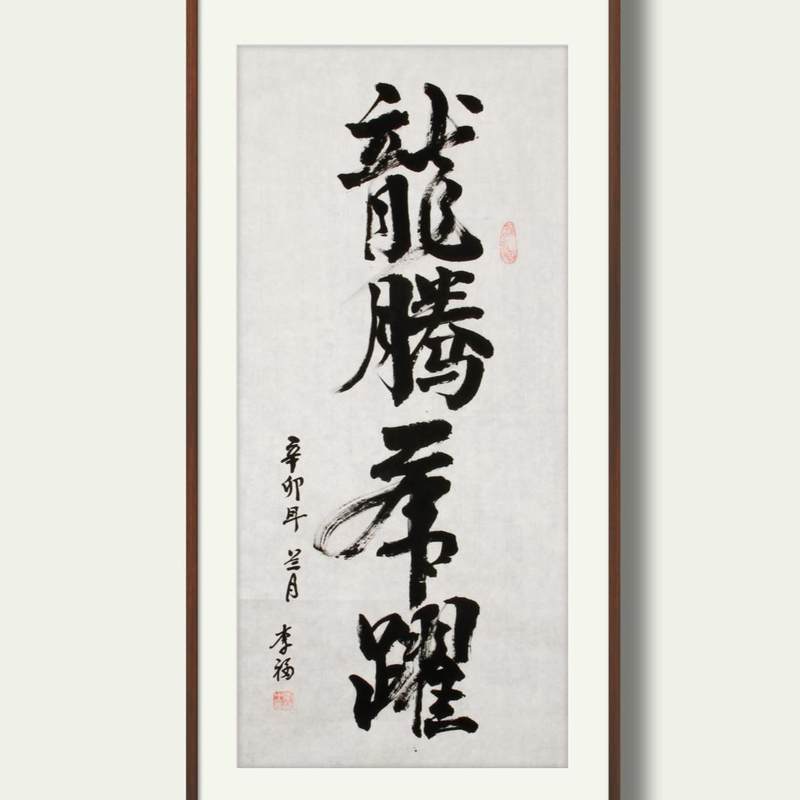 龍騰虎躍
辛卯年 兰月 李福